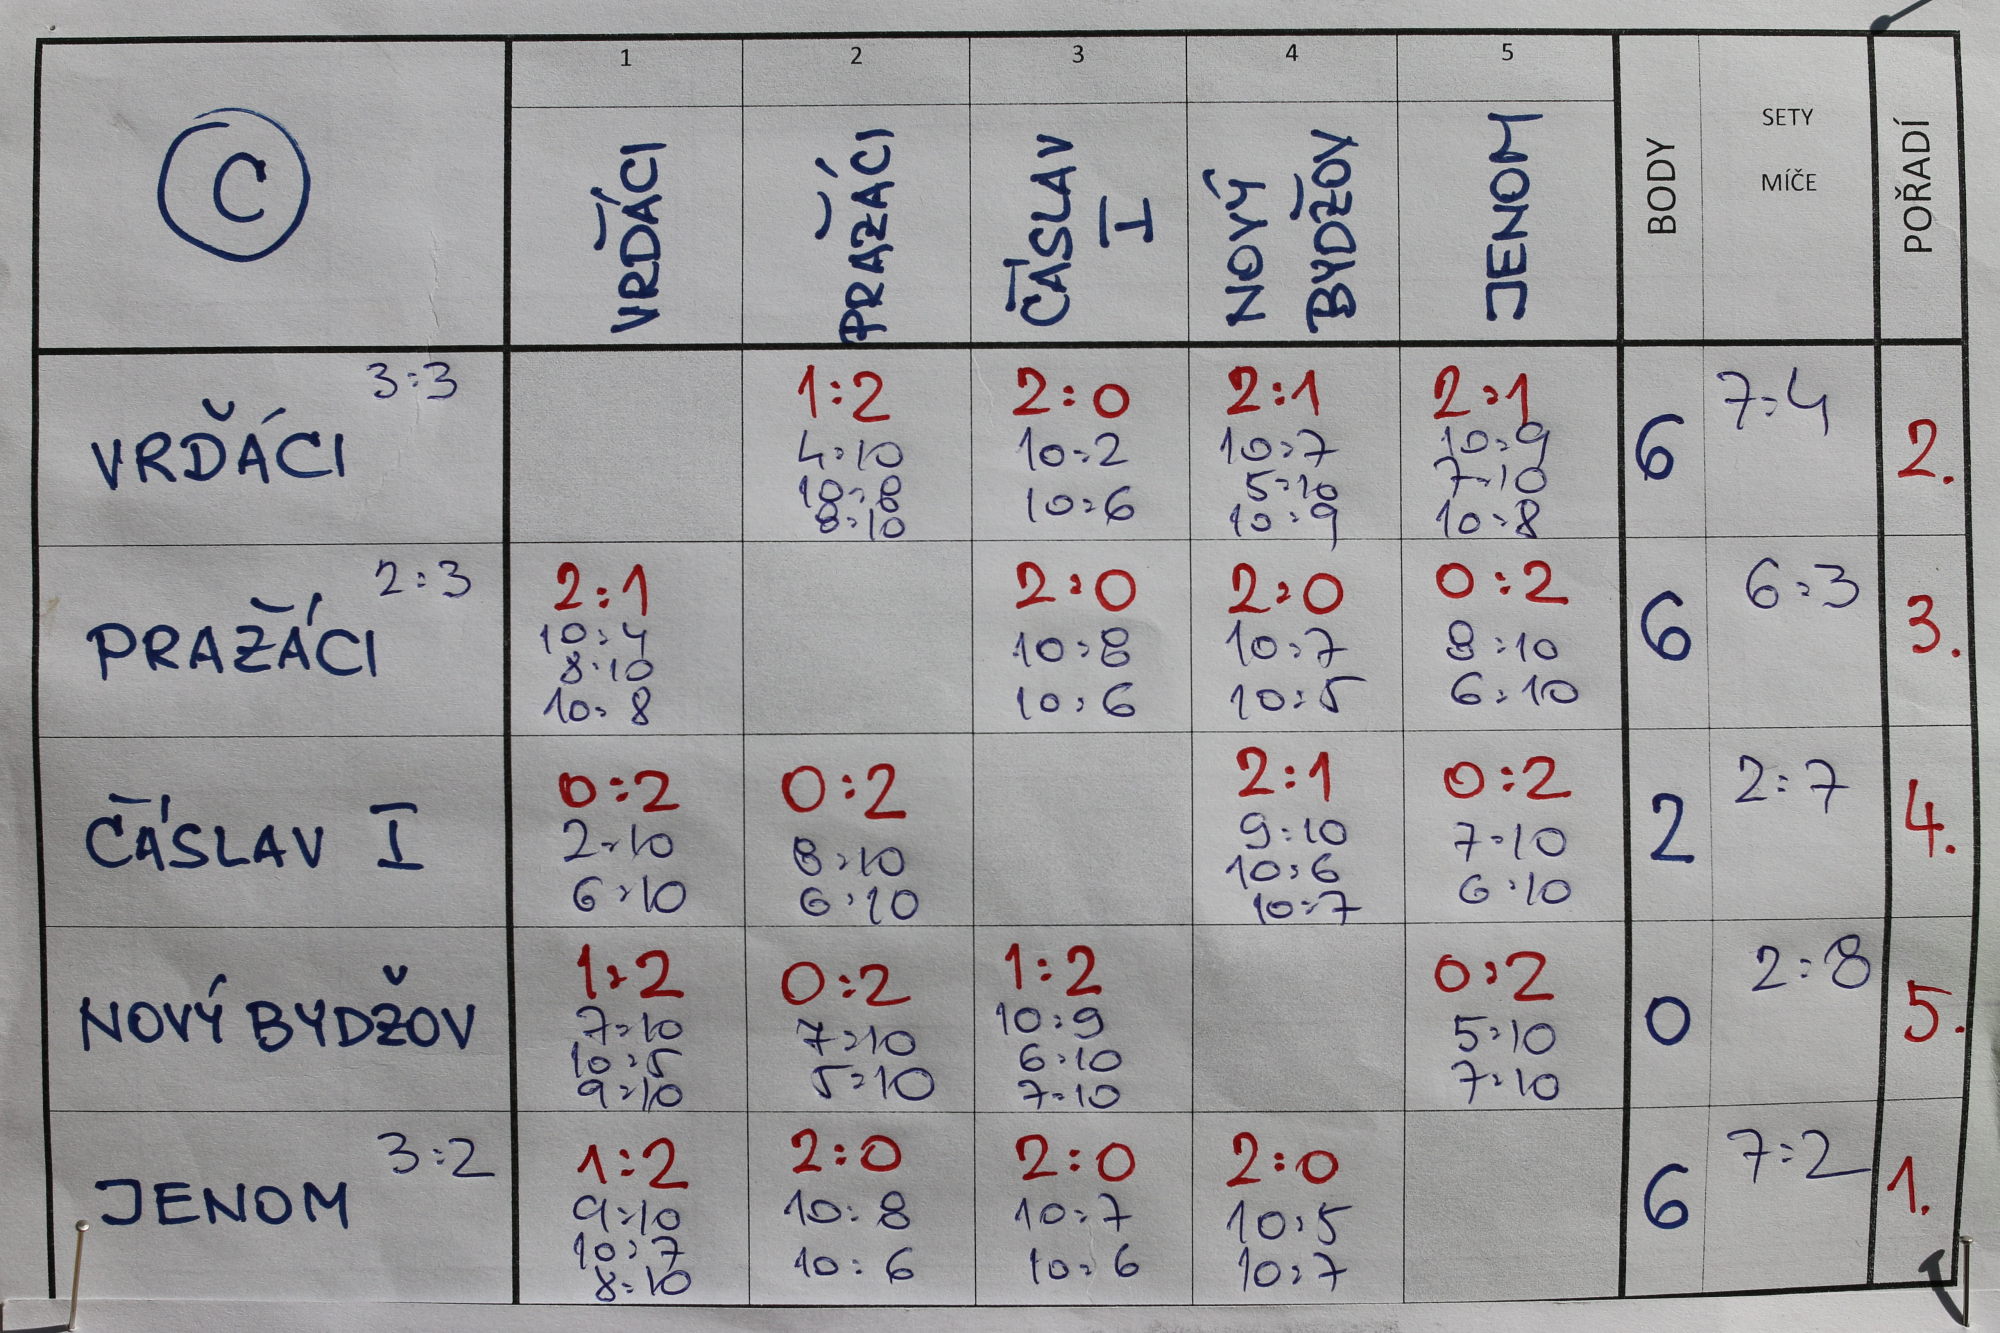 C
1 2 3 4 5
VRĎÁCI
PRAŽÁCI
ČÁSLAV I
NOVÝ BYDŽOV
JENOM
BODY
SETY
MÍČE
POŘADÍ
VRĎÁCI 3:3
1:2
4:10
10:8
8:10
2:0
10:2
10:6
2:1
10:7
5:10
10:9
2:1
10:9
7:10
10:8
6
7:4
2.
PRAŽÁCI 2:3
2:1
10:4
8:10
10:8
2:0
10:8
10:6
2:0
10:7
10:5
0:2
8:10
6:10
6
6:3
3.
ČÁSLAV I
0:2
2:10
6:10
0:2
8:10
6:10
2:1
9:10
10:6
10:7
0:2
7:10
6:10
2
2:7
4.
NOVÝ BYDŽOV
1:2
7:10
10:5
9:10
0:2
7:10
5:10
1:2
10:9
6:10
7:10
0:2
5:10
7:10
0
2:8
5.
JENOM 3:2
1:2
9:10
10:7
8:10
2:0
10:8
10:6
2:0
10:7
10:6
2:0
10:5
10:7
6
7:2
1.